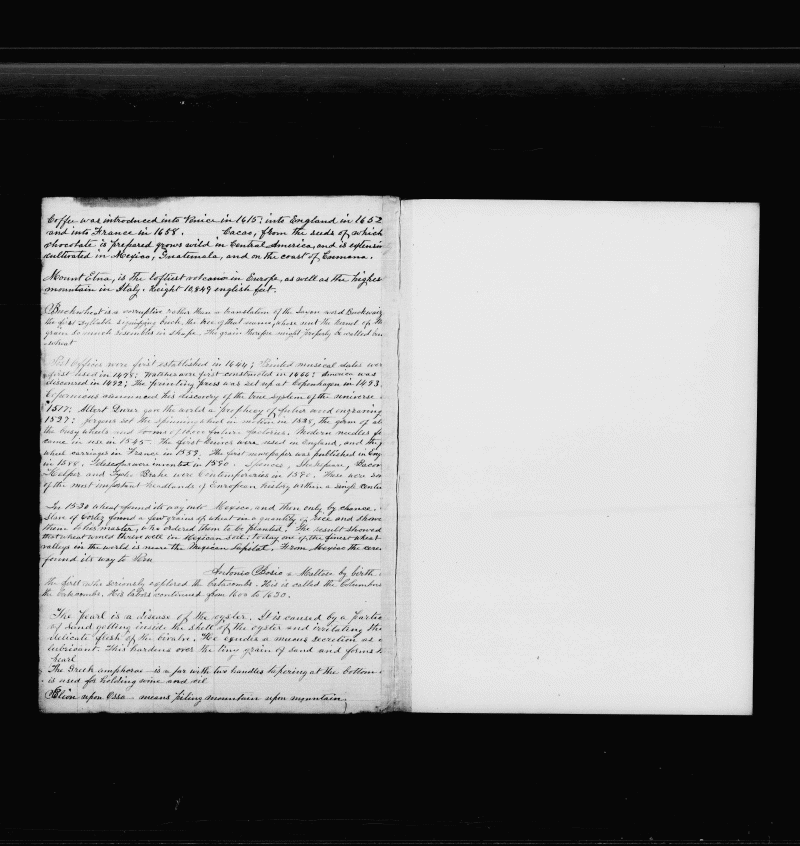 Coffee was introduced into Venice in 1615; into England in 1652
and into France in 1658. Cacao, from the seeds of which
chocolate is prepared grows wild in Central America, and is extensiv
cultivated in Mexico, Guatemala, and on the coast of Cumana.
Mount Etna, is the loftiest volcano in Europe, as well as the highes
mountain in Italy. Height 10,849 english feet.
Buckwheat is a corruptive rather than a translation of the Saxon word
the first syllable signifying beech, the tree of that name, whose nut the kernel of the
grain so much resembles in shape. The grain therefore might properly be called
wheat
Post Offices were first established in 1464; Printed musical
first used in 1473; Watches were first constructed in 1466; America was
discovered in 1492; The printing press was set up at Copenhagen in 1493.
Copernicus announced his discovery of the true system of the universe
1517; Albert Durer gave the world a prophecy of future wood engraving
1527; Jergens set the spinning wheel in motion in 1528, the germ of al
the busy wheels and looms of 10,000 future factories. Modern needles
came in use in 1545. The first knives were used in England, and the
wheel carriages in France in 1559. The first newspaper was published in Eng
in 1588. Telescopes were invented in 1590. Spencer, Shakspear, Bacon
and Tycho Brahe were contemporaries in 1590. These were
of the most important headlands of European history within a single centu
In 1530 wheat found its way into Mexico, and then only by chance.
Slave of Cortez found a few grains of wheat in a quantity of rice and showe
them to his master, who ordered them to be planted. The result showed
that wheat would thrive well in Mexican soil. today one of the finest wheat
valleys in the world is near the Mexican Capital. From Mexico the cere
found its way to Peru
Antonio Bosio a Maltese by birth
the first who seriously explored the Catacombs. He is called the Columbus
the Catacombs. His labors continued from 1600 to 1630.
The pearl is a disease of the oyster. It is caused by a partic
of sand getting inside the shell of the oyster and irritating the
delicate flesh of the bivalve. He exudes a mucus secretion as a
lubricant. This hardens over the tiny grain of sand and forms
pearl
The Greek amphorae is a jar with two handles tapering at the bottom
is used for holding wine and oil
Pelion upon Ossa means piling mountain upon mountain